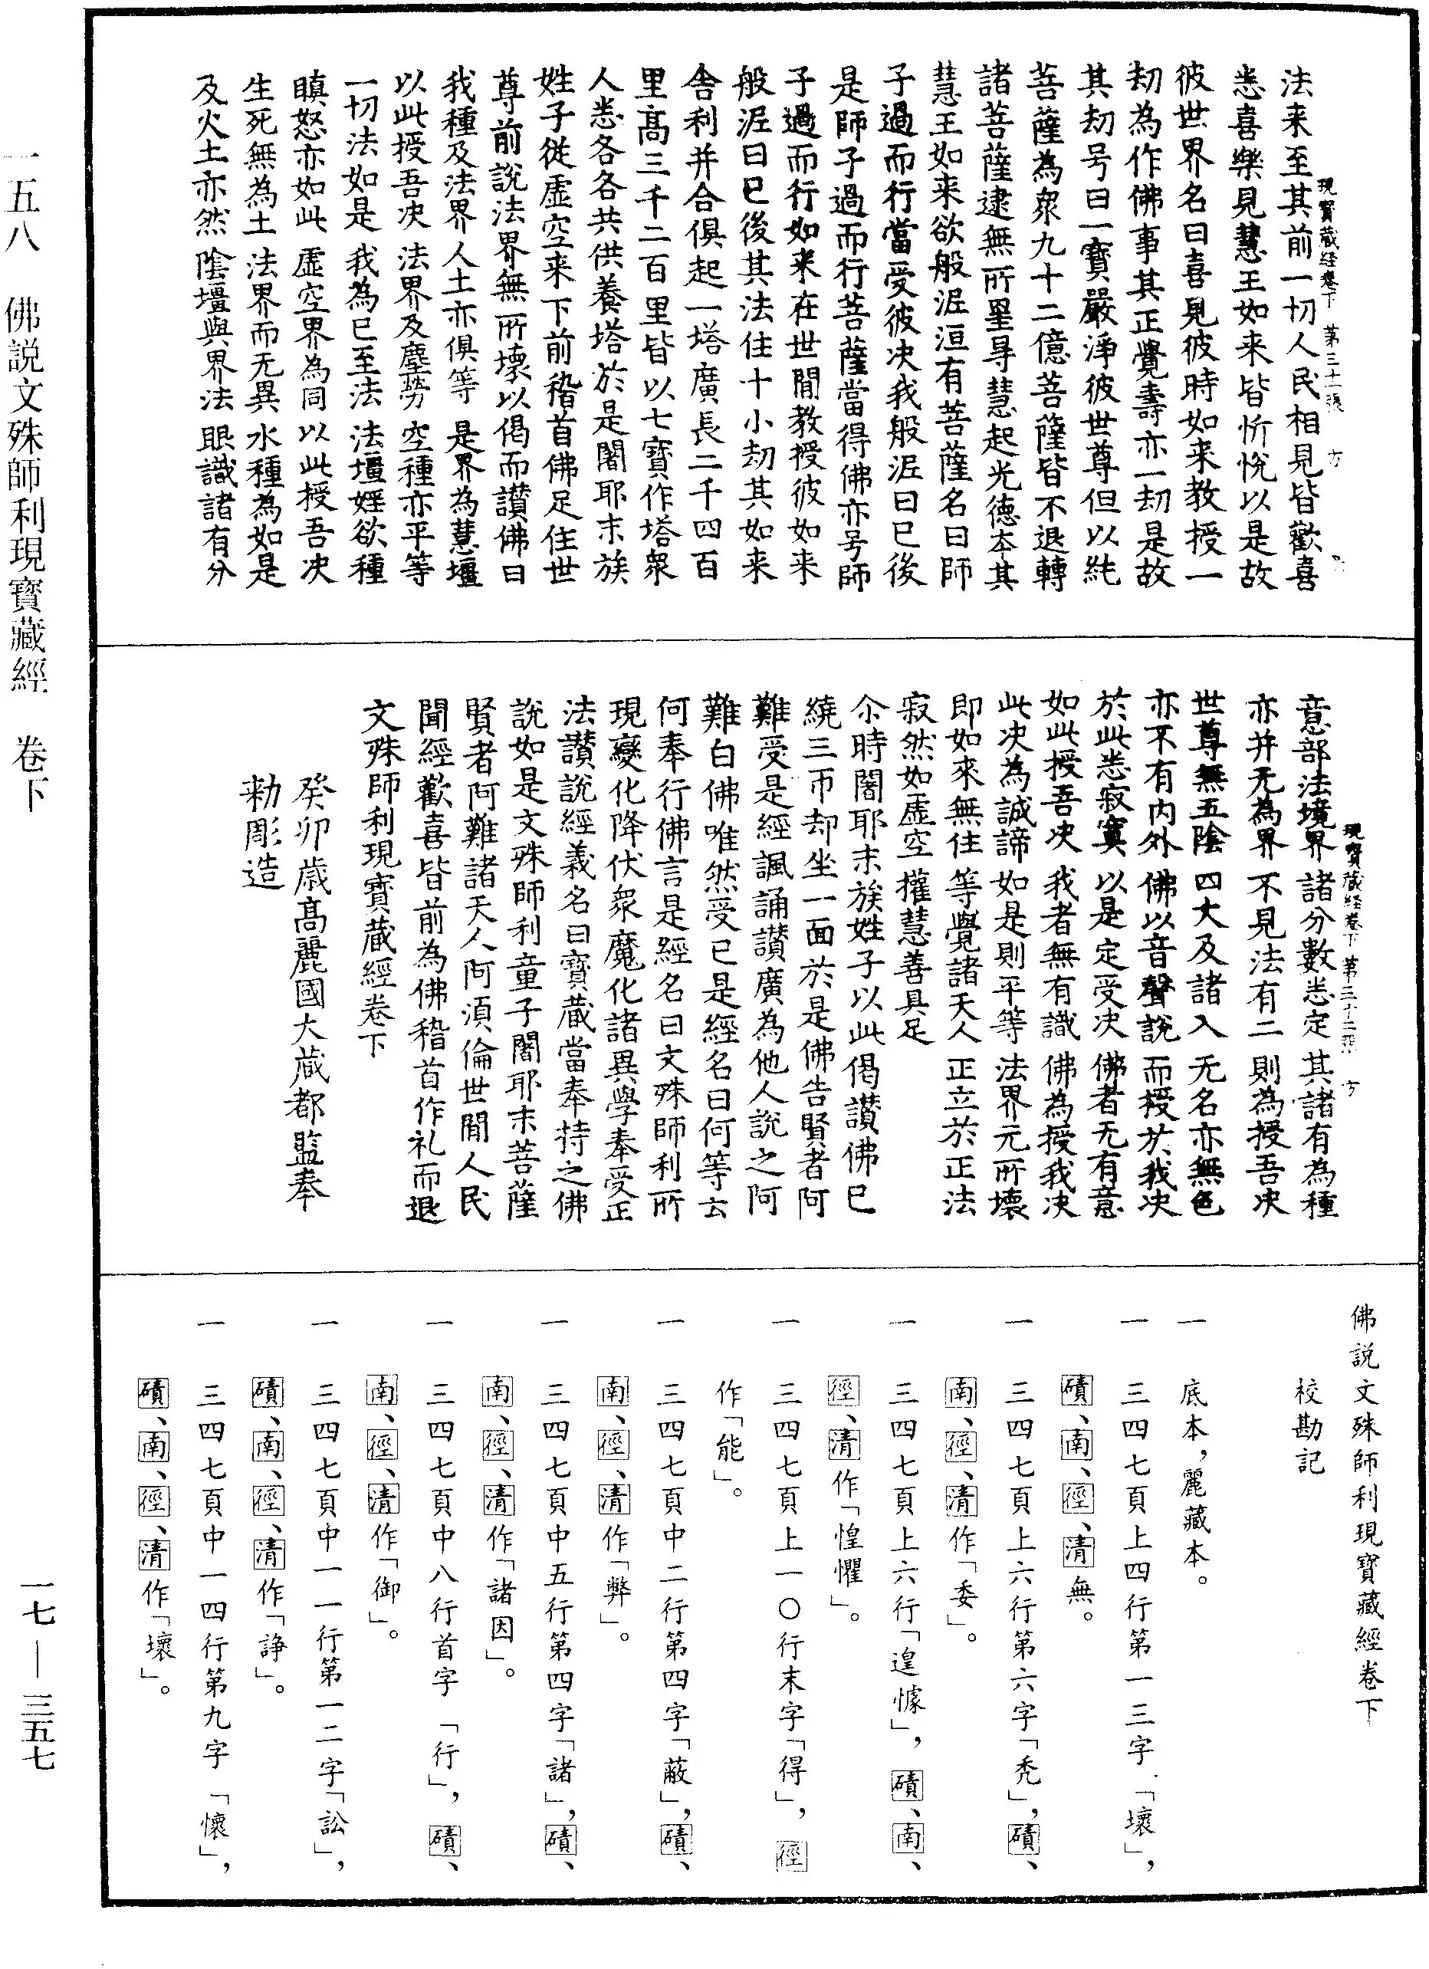 現寶蔵経巻下 第三十一張 方
法来至其前一切人民相見皆歡喜
悉喜樂見慧王如来皆忻悅以是故
彼世界名曰喜見彼時如来教授一
劫為作佛事其正覺壽亦一劫是故
其劫号曰一寶嚴淨彼世尊但以純
菩薩為衆九十二億菩薩皆不退轉
諸菩薩逮無所罣㝵慧起光德本其
慧王如来欲般泥洹有菩薩名曰師
子過而行當受彼决我般泥曰已後
是師子過而行菩薩當得佛亦号師
子過而行如来在世閒教授彼如来
般泥曰已後其法住十小劫其如来
舎利并合俱起一塔廣長二千四百
里髙三千二百里皆以七寶作塔衆
人悉各各共供養塔於是闍耶末族
姓子從虛空来下前稽首佛足住世
尊前說法界無所壞以偈而讃佛曰
我種及法界人土亦俱等 是界為慧壇
以此授吾决 法界及塵勞 空種亦平等
一切法如是 我為已至法 法壇婬欲種
瞋怒亦如此 虛空界為同 以此授吾决
生死無為土 法界而无異 水種為如是
及火土亦然 陰壇與界法 眼識諸有分
現寶蔵経巻下 第三十二張 方
意部法境界 諸分數悉定 其諸有為種
亦并无為界 不見法有二 則為授吾决
世尊無五陰 四大及諸入 无名亦無色
亦不有内外 佛以音聲說 而授於我决
於此悉寂寞 以是定受决 佛者无有意
如此授吾决 我者無有識 佛為授我决
此决為誠諦 如是則平等 法界元所壞
即如來無住 等覺諸天人 正立於正法
寂然如虛空 權慧善具足
尒時闍耶末族姓子以此偈讃佛已
繞三帀却坐一面於是佛告賢者阿
難受是經諷誦讃廣為他人說之阿
難白佛唯然受已是經名曰何等云
何奉行佛言是經名曰文殊師利所
現變化降伏衆魔化諸異學奉受正
法讃說經義名曰寶蔵當奉持之佛
說如是文殊師利童子闍耶末菩薩
賢者阿難諸天人阿須倫世閒人民
聞經歡喜皆前為佛稽首作礼而退
文殊師利現寶蔵經卷下
癸卯歲髙麗國大蔵都監奉
勅彫造
佛説文殊師利現寶藏經卷下
校勘記
一 底本，麗藏本。
一 三四七頁上四行第一三字「壞」，
磧、南、徑、清無。
一 三四七頁上六行第六字「禿」，磧、
南、徑、清作「委」。
一 三四七頁上六行「遑懅」，磧、南、
徑、清作「惶懼」。
一 三四七頁上一〇行末字「得」，徑
作「能」。
一 三四七頁中二行第四字「蔽」，磧、
南、徑、清作「弊」。
一 三四七頁中五行第四字「諸」，磧、
南、徑、清作「諸因」。
一 三四七頁中八行首字「行」，磧、
南、徑、清作「御」。
一 三四七頁中一一行第一二字「訟」，
磧、南、徑、清作「諍」。
一 三四七頁中一四行第九字「懷」，
磧、南、徑、清作「壞」。
一五八 佛説文殊師利現寶藏經 卷下
一七—三五七